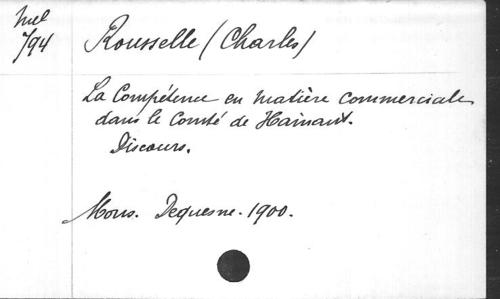 Mel
794
Rousselle (Charles)
La Compétence en matière commerciale
dans le Comté de Hainaut.
Discours.
Mons. Dequesne. 1900.